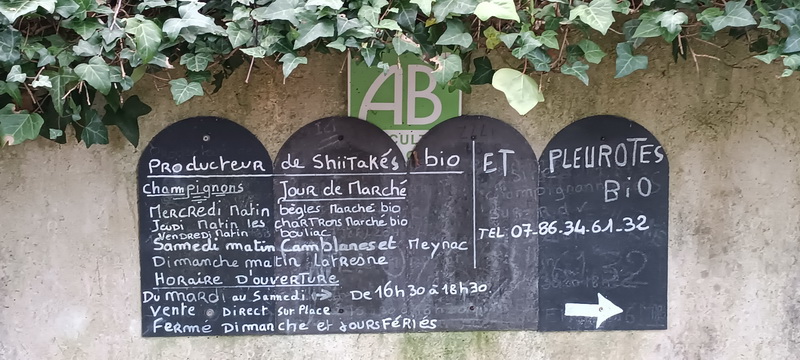 AB
Producteur de Shiitakés bio ET PLEUROTES BiO
champignons Jour de Marché
Mercredi Matin bègles Marché bio
Jeudi Matin les chaRTRons Marché bio
Vendredi Matin bouliac
Samedi matin Camblanes et Meynac
Dimanche matin Latresne
TEL: 07-86-34-61-32
Horaire D'ouverture
Du mardi au Samedi → De 16h30 à 18h30
Vente Direct sur Place
Fermé Dimanche et Jours Fériés